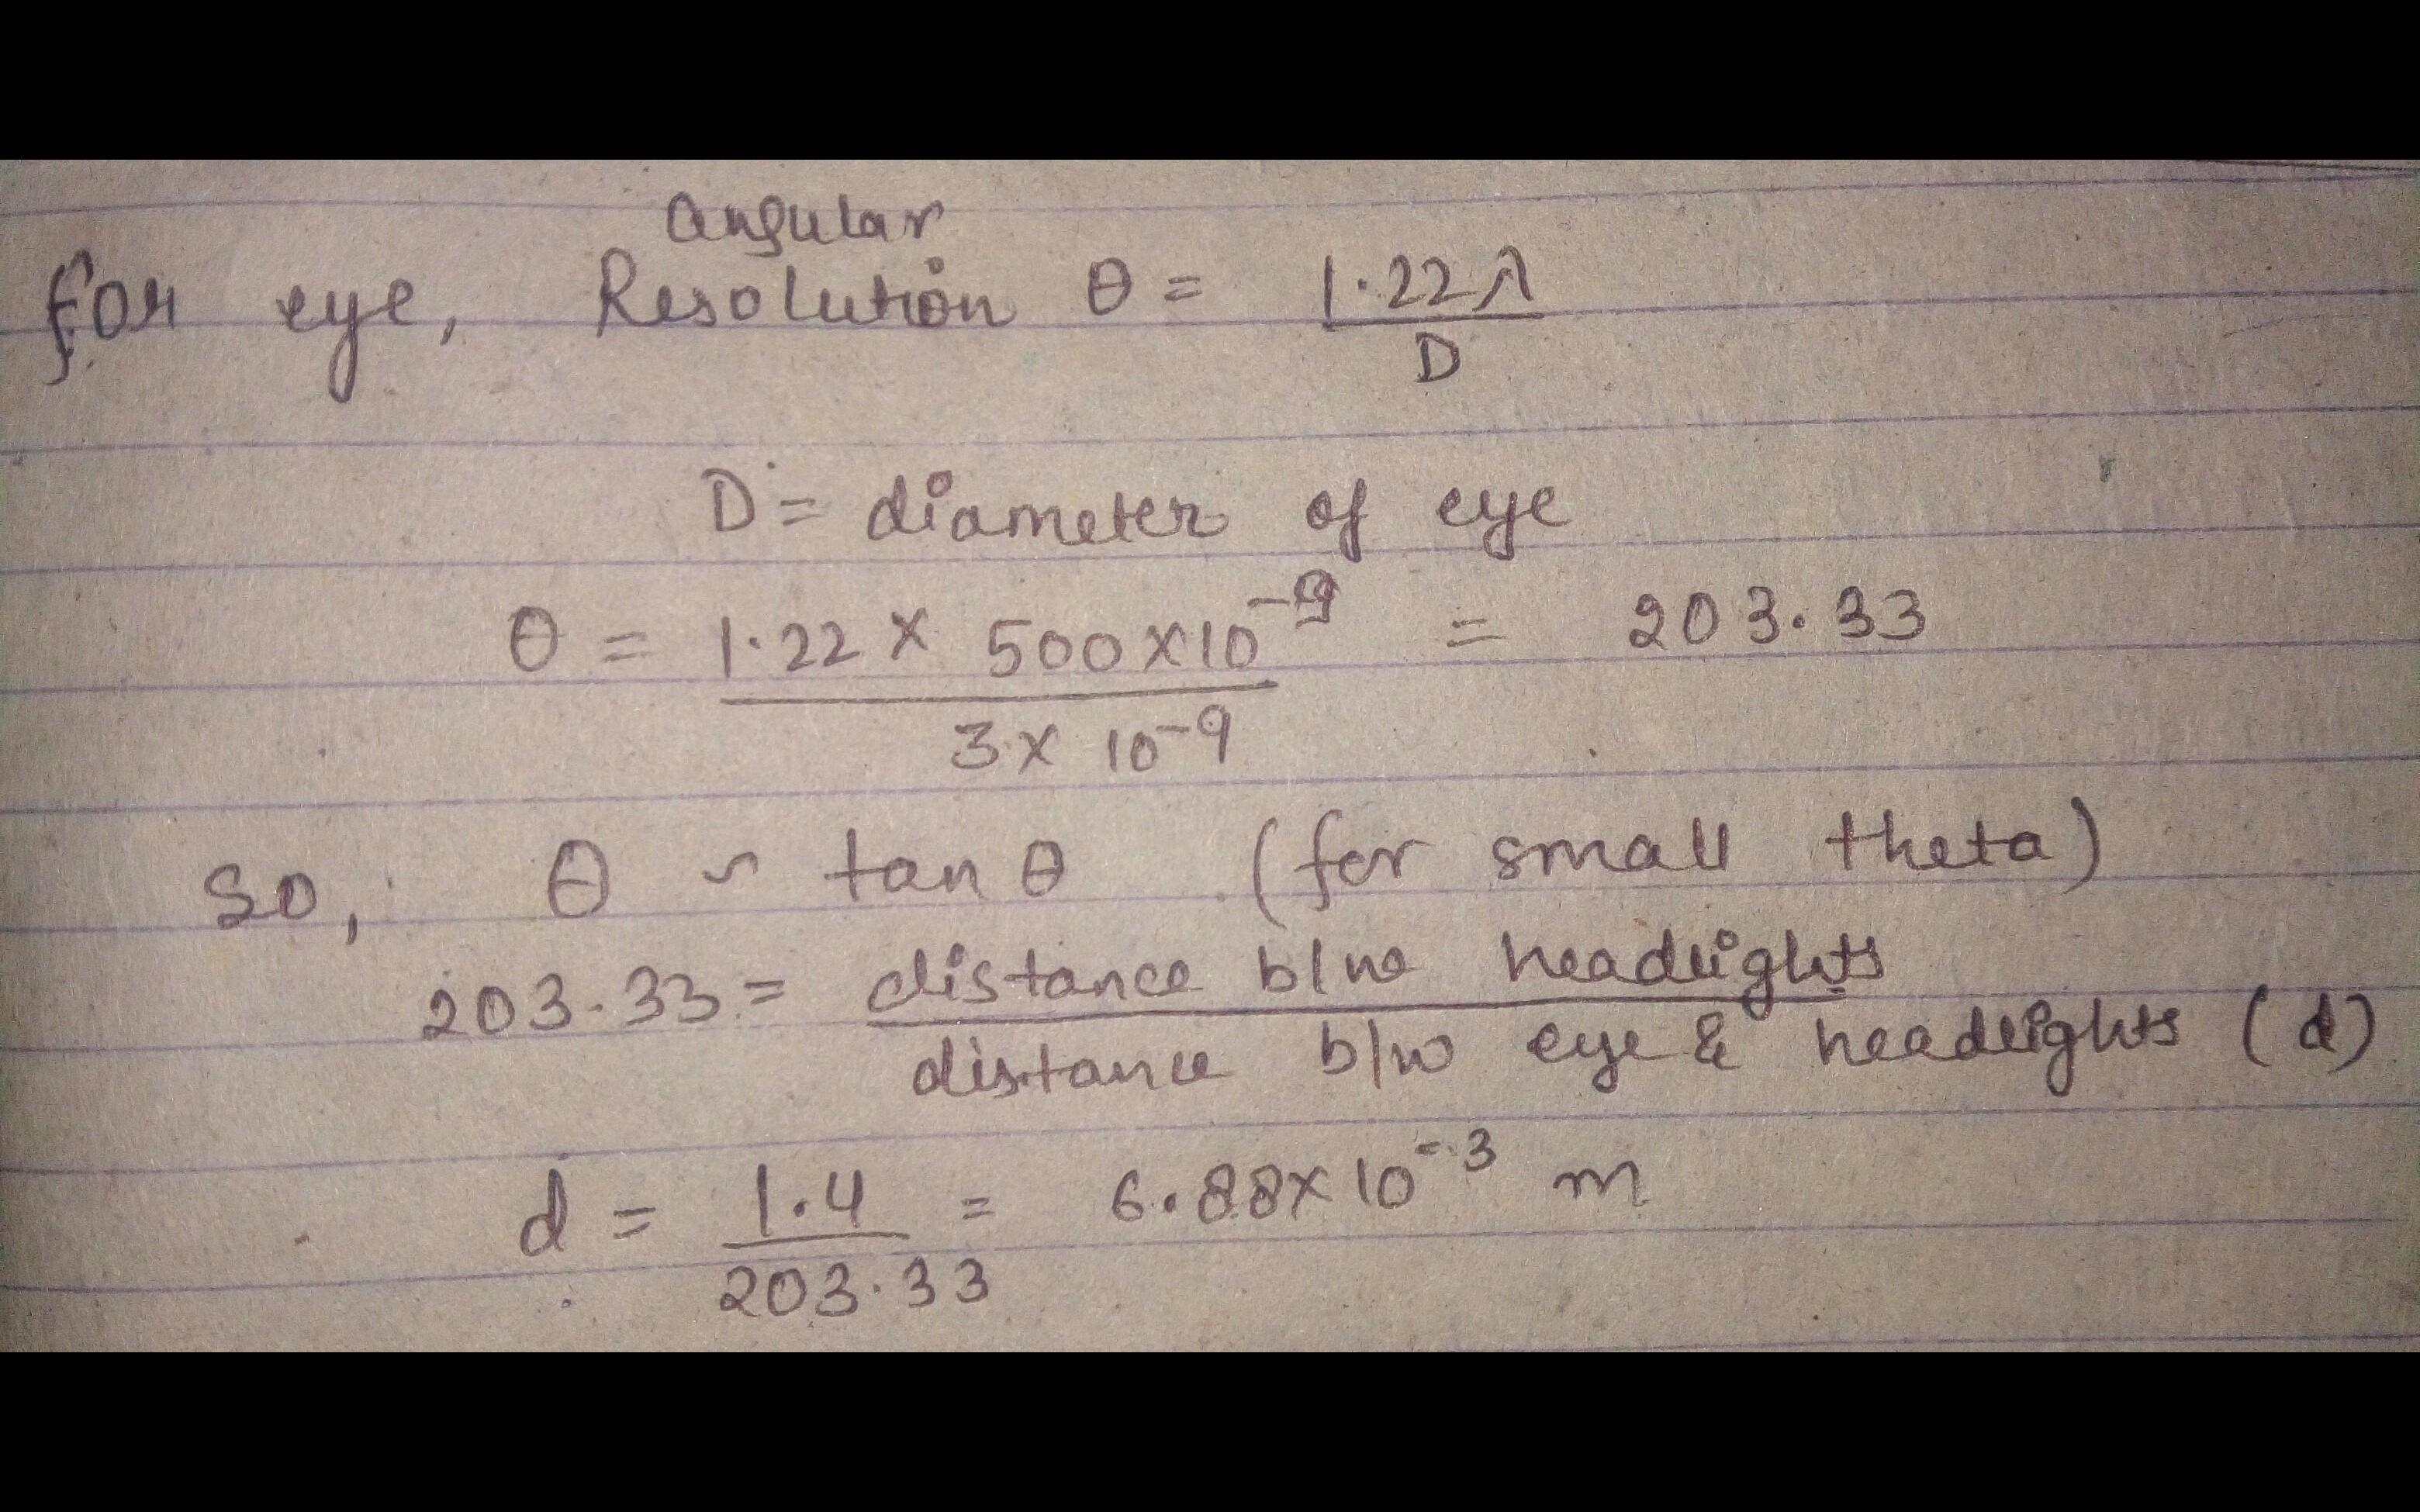 angular
For eye, Resolution θ = 1.22λ / D
D = diameter of eye
θ = 1.22 × 500×10⁻⁹ / 3× 10⁻⁹ = 203.33
So, θ ~ tan θ (for small theta)
203.33 = distance b/w headlights / distance b/w eye & headlights (d)
d = 1.4 / 203.33 = 6.88×10⁻³ m